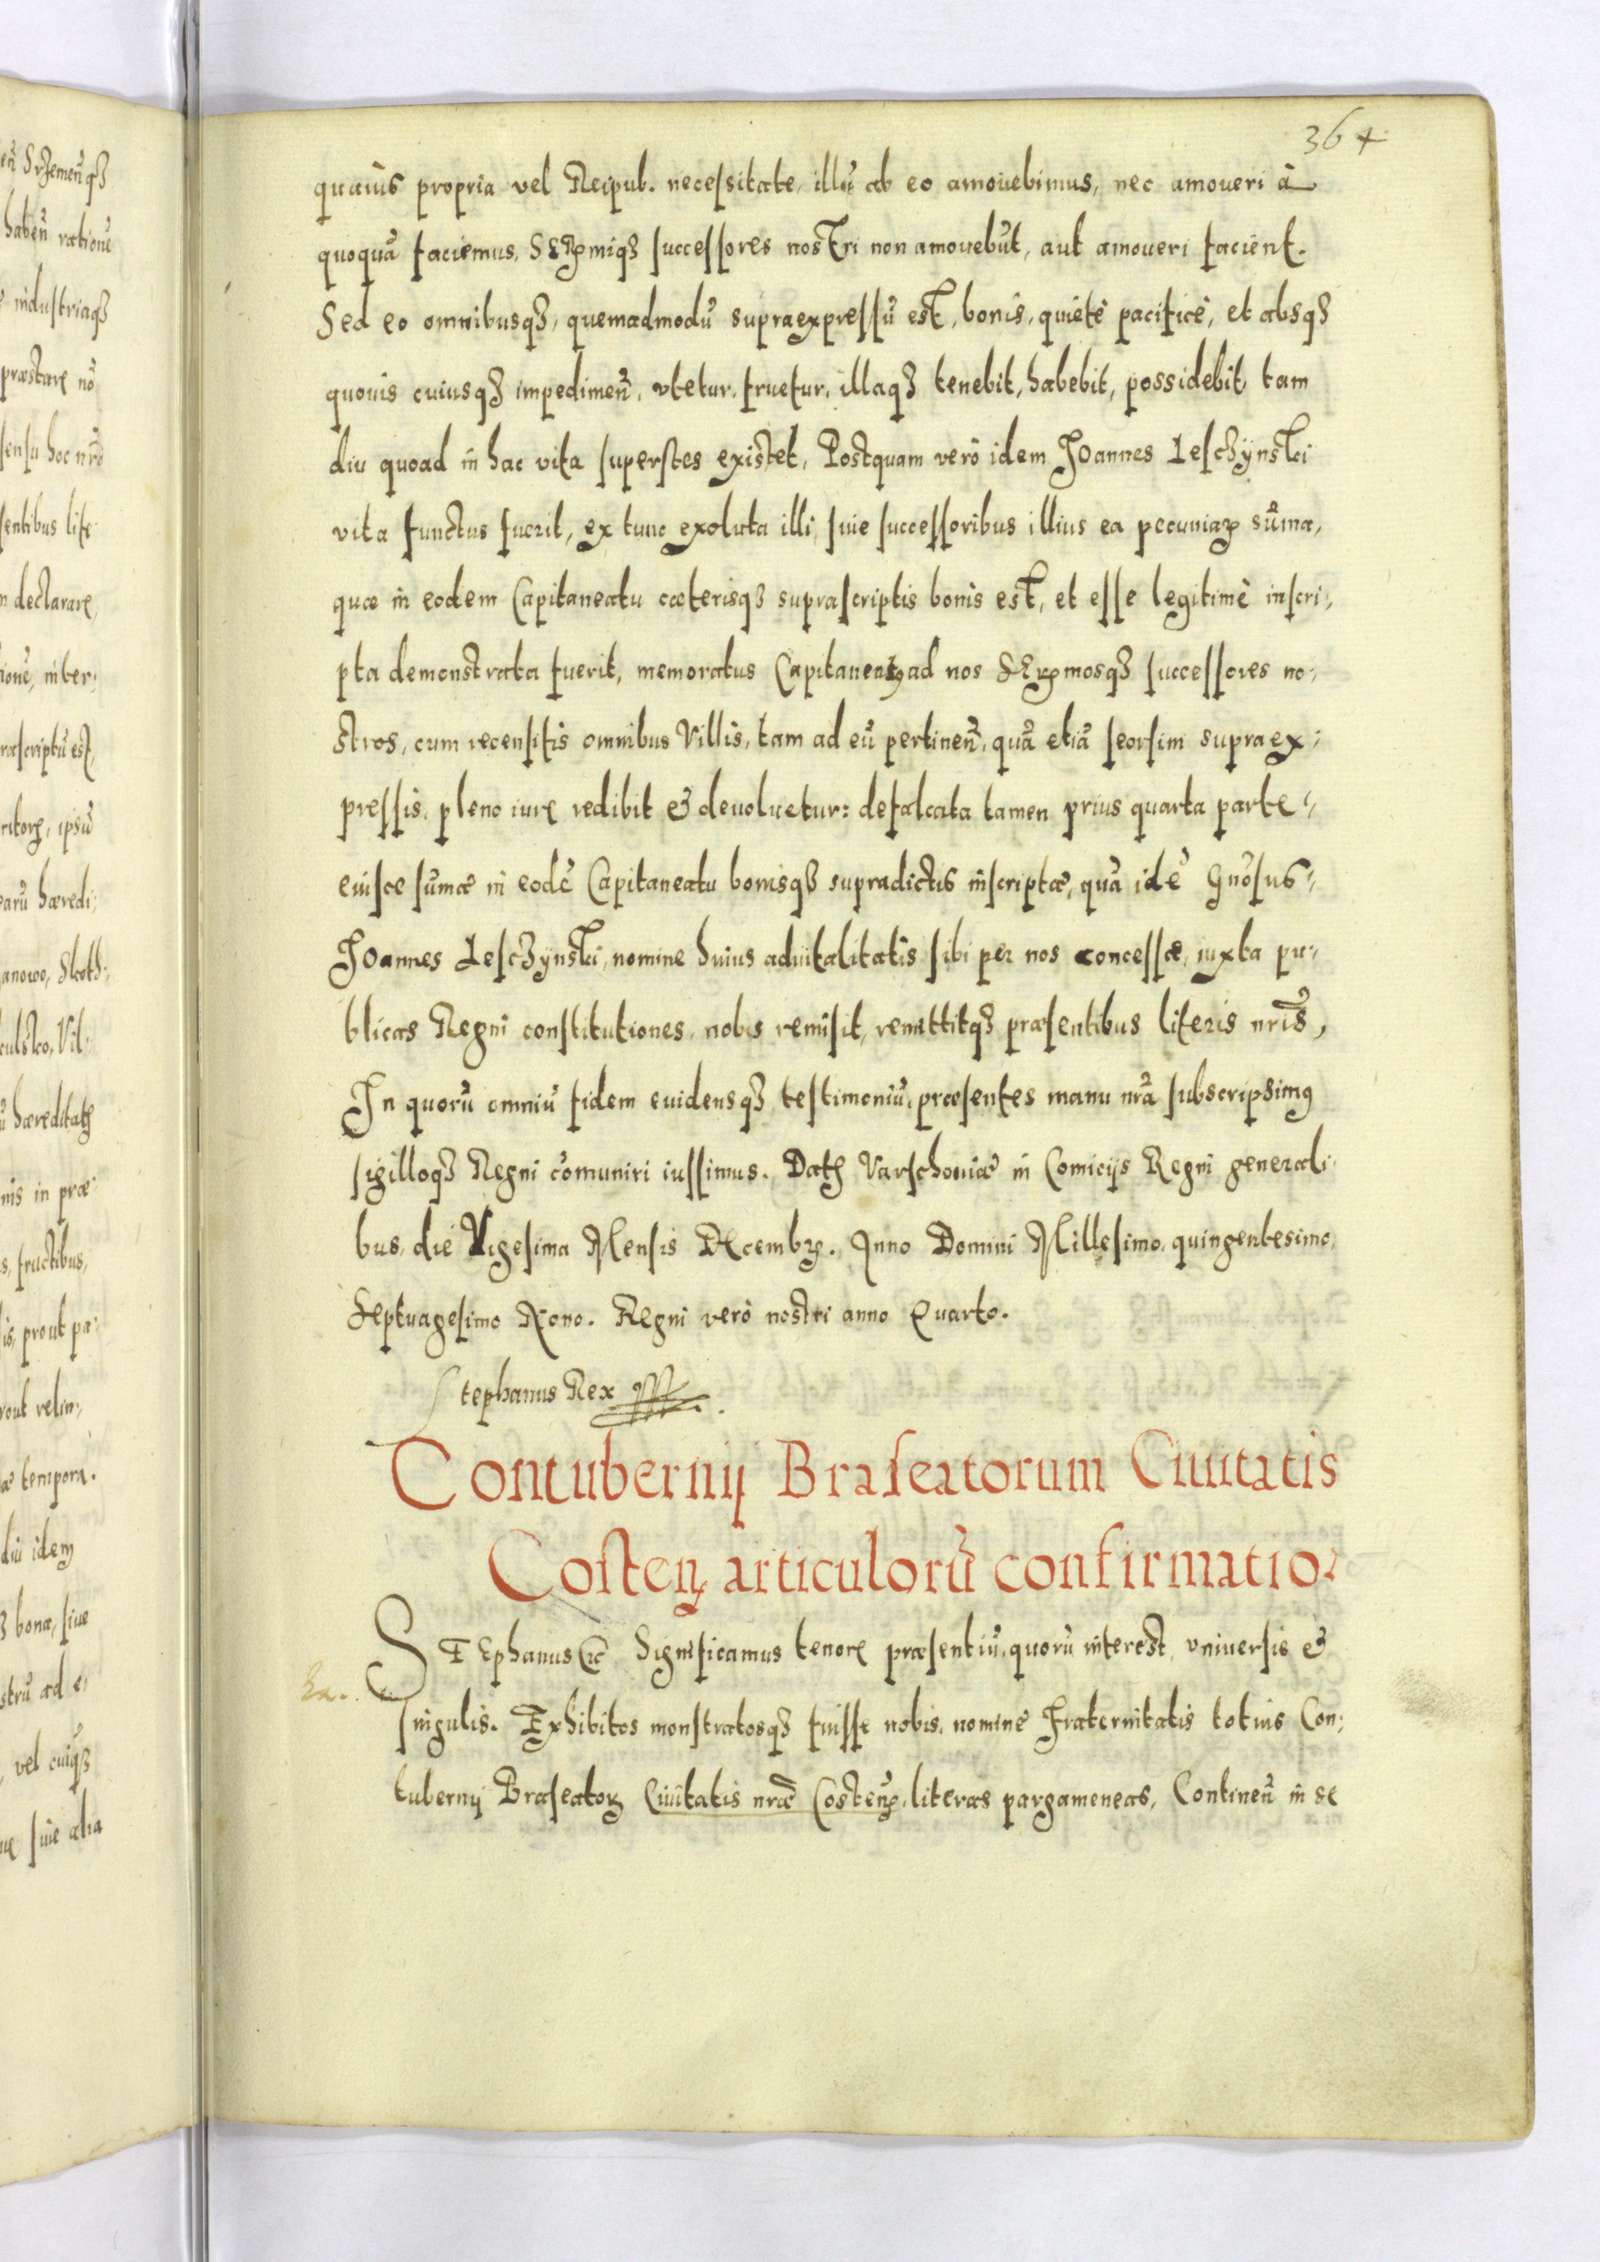 364
quauis propria vel Reipub. necessitate, illũ ab eo amouebimus, nec amoueri à
quoquã faciemus, SERꝫmiqꝫ successores nostri non amouebũt, aut amoueri facient.
Sed eo omnibusqꝫ, quemadmodũ supraexpressũ est, bonis, quietè pacificè, et absqꝫ
quouis cuiusqꝫ impedimeñ, vtetur, fruetur, illaqꝫ tenebit, habebit, possidebit, tam
diu quoad in hac vita superstes existet, Postquam verò idem Joannes Leschÿnski
vita functus fuerit, ex tunc exoluta illi, siue successoribus illius ea pecuniaꝝ sũma,
quæ in eodem Capitaneatu cæterisqꝫ suprascriptis bonis est, et esse legitimè inscri-
pta demonstrata fuerit, memoratus Capitaneatꝰ ad nos SERꝫmosqꝫ successores no-
stros, cum recensitis omnibus Villis, tam ad eũ pertineñ, quã etiã seorsim supraex-
pressis, pleno iure redibit & deuoluetur: defalcata tamen prius quarta parte
eiusce sũmæ in eodẽ Capitaneatu bonisqꝫ supradictis inscriptæ, quã idẽ Gñosus
Joannes Leschÿnski, nomine huius aduitalitatis sibi per nos concessæ, iuxta pu-
blicas Regni constitutiones, nobis remisit, remittitqꝫ præsentibus literis nr̃is,
In quorũ omniũ fidem euidensqꝫ testimoniũ, præsentes manu nr̃a subscripsimꝰ
sigilloqꝫ Regni cõmuniri iussimus. Datꝫ Varschouiæ in Comicijs Regni generali-
bus, die Vigesima Mensis Decembꝝ. Anno Domini Millesimo, quingentesimo,
Septuagesimo Nono. Regni verò nostri anno Quarto.
Stephanus Rex
Contubernij Braseatorum Ciuitatis
Costeñ articulorũ confirmatio.
STEphanus &c Significamus tenore præsentiũ, quorũ interest, vniuersis &
singulis. Exhibitas monstratasqꝫ fuisse nobis, nomine Fraternitatis totius Con-
tubernij Braseatoꝝ Ciuitatis nræ̃ Costeñ, literas pargameneas, Contineñ in se